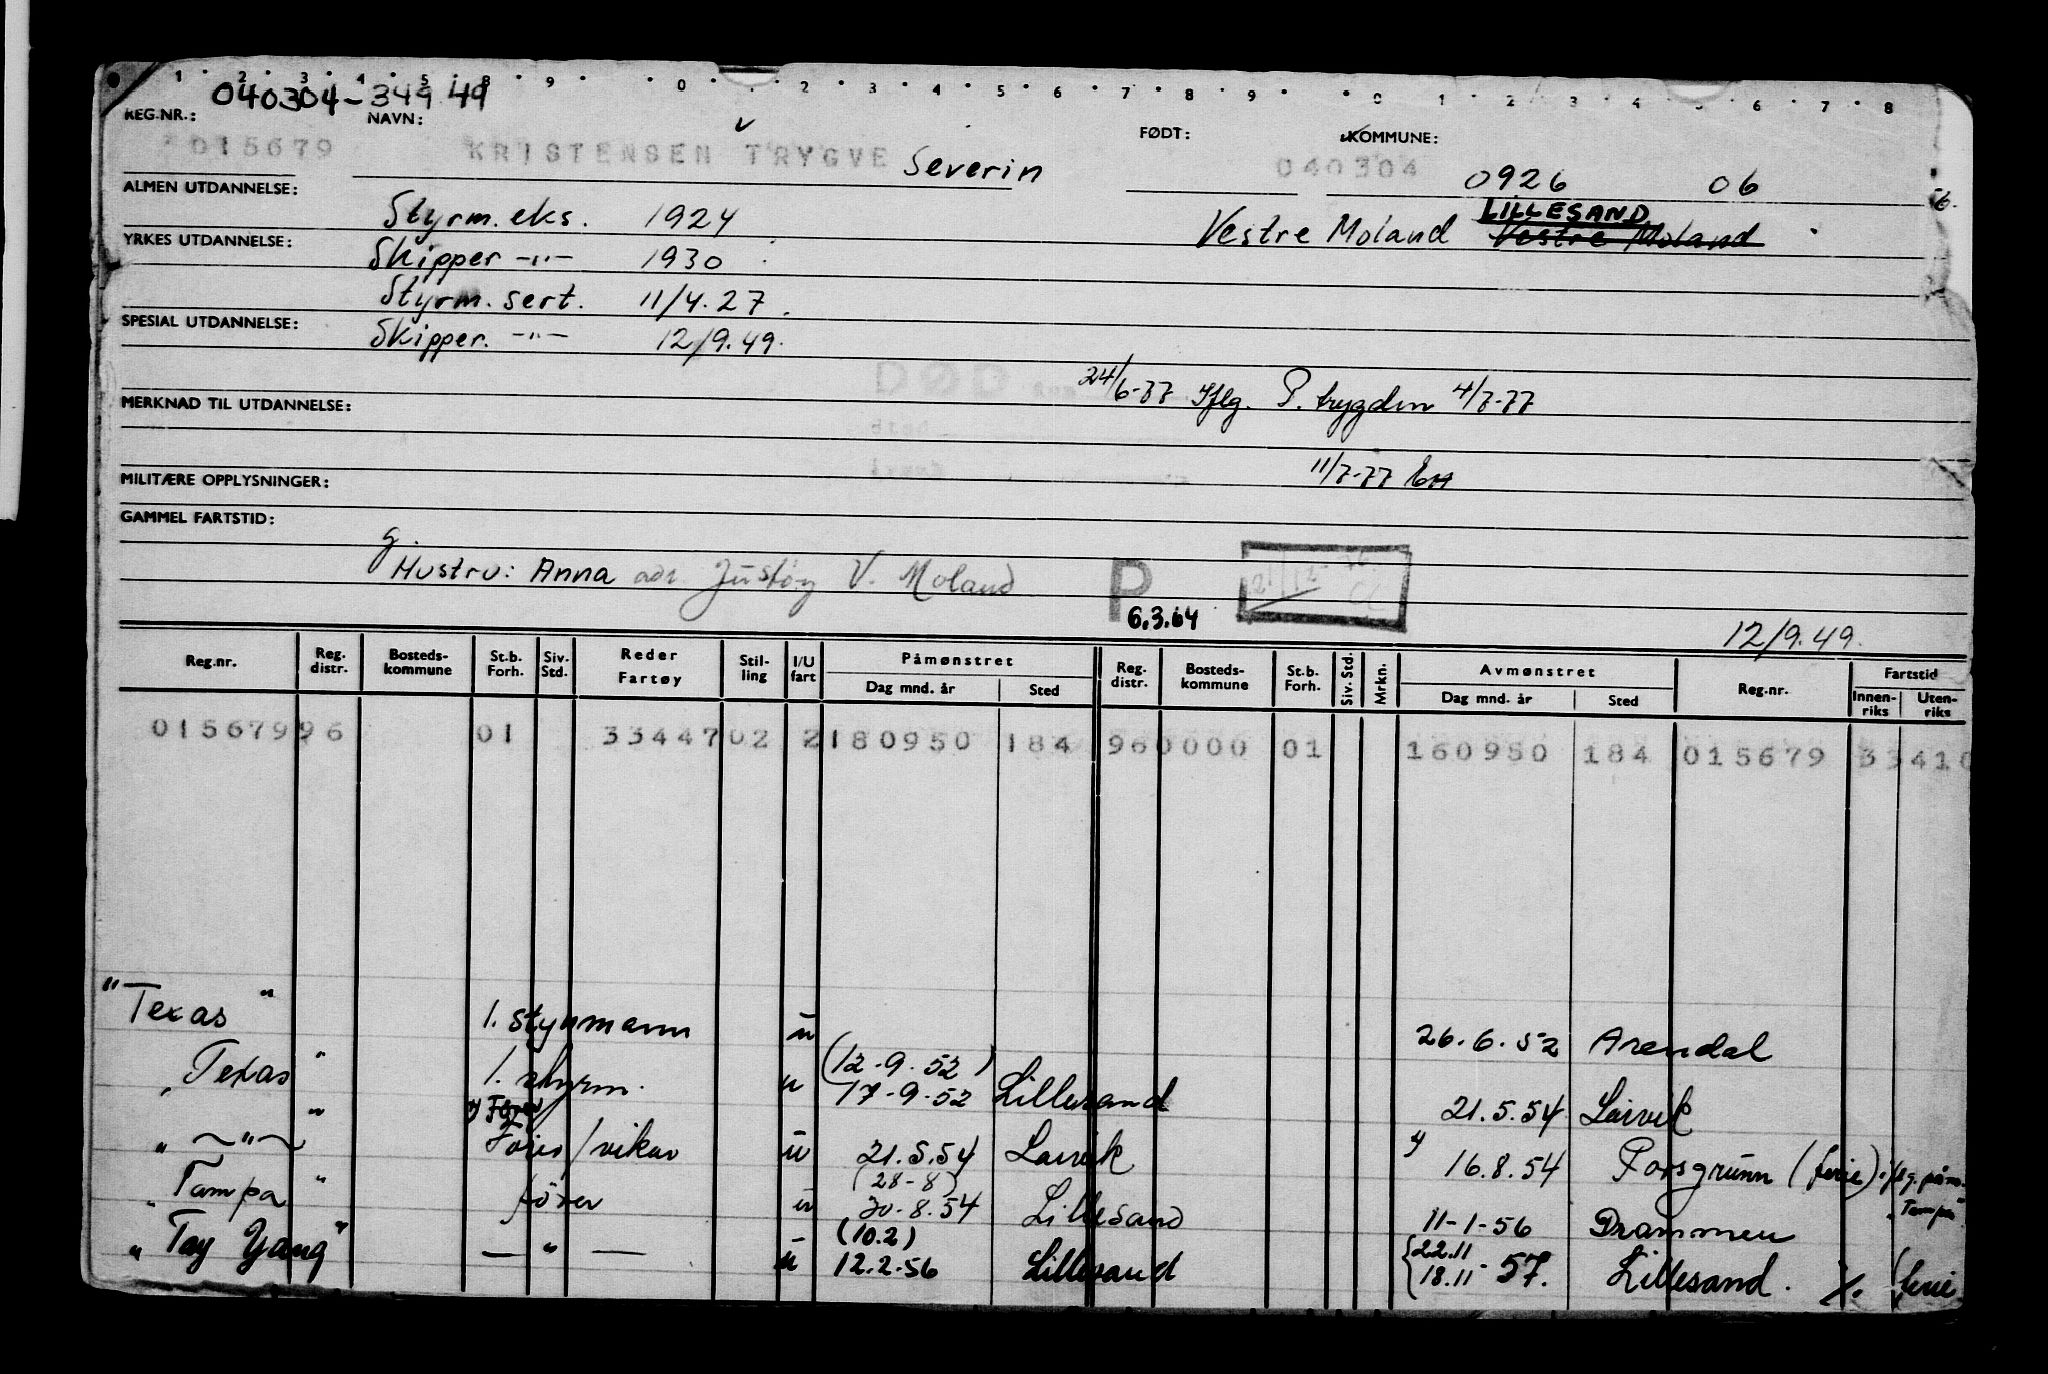 1 2 3 4 5 8 9 0 2 3 4 5 6 7 8 9 0 1 2 3 4 5 6 7 8
040304-349 49
REG.NR.: NAVN: FØDT: KOMMUNE:
015679 KRISTENSEN TRYGVE Severin 040304 0926 06
ALMEN UTDANNELSE: Styrm. eks. 1924 Vestre Moland LILLESAND Vestre Moland
YRKES UTDANNELSE: Skipper -"- 1930
Styrm. sert. 11/4.27.
SPESIAL UTDANNELSE: Skipper. -"- 12/9.49.
DØD 24/6-77 Iflg. P. trygden 4/7-77
MERKNAD TIL UTDANNELSE:
sted
11/7-77 EH
MILITÆRE OPPLYSNINGER:
GAMMEL FARTSTID:
g.
Hustru: Anna adr. Justøy V. Moland P
6.3.64
12/9.49.
Reg.nr. Reg. distr. Bosteds-kommune St.b. Forh. Siv. Std. Reder Fartøy Stil-ling I/U fart Påmønstret Dag mnd. år Sted Reg. distr. Bosteds-kommune St.b. Forh. Siv. Std. Mrkn. Avmønstret Dag mnd. år Sted Reg.nr. Fartstid Innen-riks Uten-riks
015679 96 01 33447 02 2 180950 184 96 0000 01 160950 184 015679 33410
"Texas" 1. styrmann u 26.6.52 Arendal
"Texas" 1. styrm. u (12-9.52) 17-9-52 Lillesand 21.5.54 Larvik
" -"- " Fører/vikar u 21.5.54 Larvik 16.8.54 Porsgrunn (ferie) iflg. påm. "Tampa"
"Tampa" fører u (28-8) 30-8.54 Lillesand 11-1-56 Drammen
"Tay Yang" — " — u (10.2) 12.2-56 Lillesand {22.11 18.11 57. Lillesand. (ferie